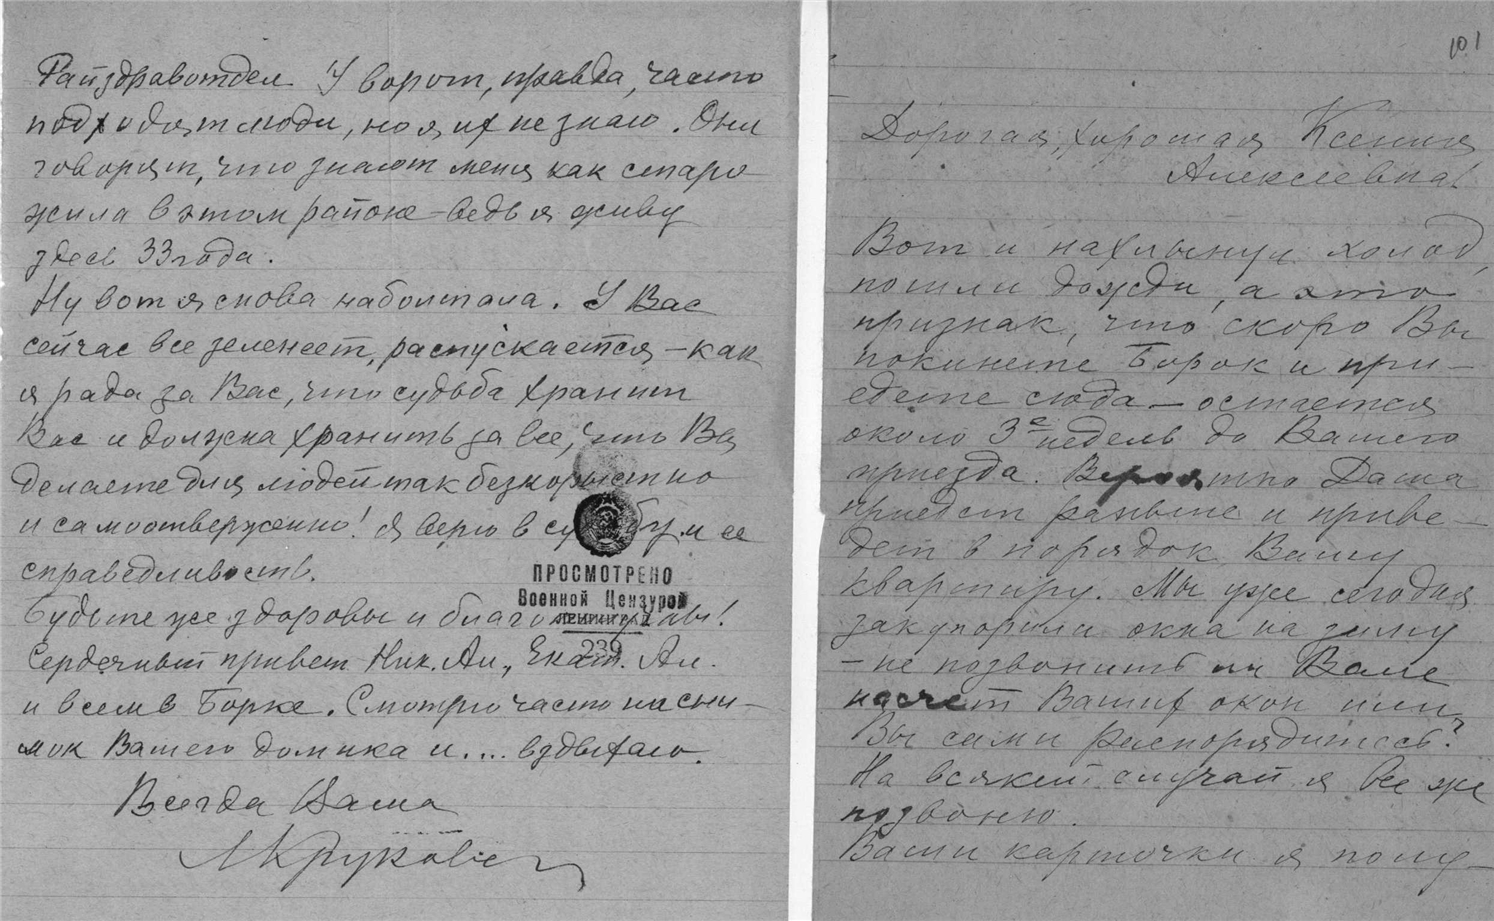 Райздравотдел У ворот, правда, часто
подходят люди, но я их не знаю. Они
говорят, что знают меня как старо
жила в этом районе – ведь я живу
здесь 33 года.
Ну вот я снова наболтала. У Вас
сейчас все зеленеет, распускается – как
я рада за Вас, что судьба хранит
Вас и должна хранить за все, что Вы
делаете для людей так безкорыстно
и самоотверженно! Я верю в судьбу и ее
справедливость.
Будьте же здоровы и благополучны!
Сердечный привет Ник. Ал., Екат. Ал.
и всем в Борке. Смотрю часто на сни–
мок Вашего домика и.... вздыхаю.
Всегда Ваша
МКрукович
ПРОСМОТРЕНО
Военной Цензурой
ЛЕНИНГРАД
239
101
Дорогая, хорошая Ксения
Алексеевна!
Вот и нахлынул холод,
пошли дожди, а это
признак, что скоро Вы
покинете Борок и при–
едете сюда – остается
около 3х недель до Вашего
приезда. Вероятно Даша
приедет раньше и приве–
дет в порядок Вашу
квартиру. Мы уже сегодня
закупорили окна на зиму
– не позвонить ли Вале
насчет Ваших окон или
Вы сами распорядитесь?
На всякий случай я все же
позвоню.
Ваши карточки я полу–